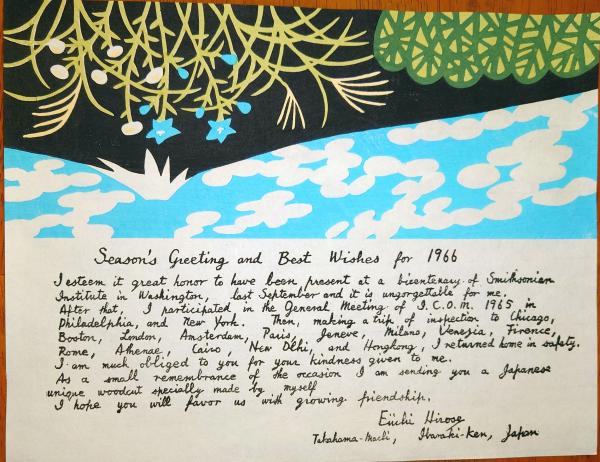 Season's Greeting and Best Wishes for 1966
I esteem it great honor to have been present at a bicentenary of Smithsonian
Institute in Washington, last September and it is unforgettable for me.
After that, I participated in the General Meeting of I.C.O.M. 1965 in
Philadelphia, and New York. Then, making a trip of inspection to Chicago,
Boston, London, Amsterdam, Paris, Jeneve, Milano, Venezia, Firence,
Rome, Athenae, Cairo, New Dlhi, and Hongkong, I returned home in safety.
I am much obliged to you for your kindness given to me.
As a small remembrance of the occasion I am sending you a Japanese
unique woodcut specially made by myself
I hope you will favor us with growing friendship.
Eiichi Hirose
Takahama-Machi, Ibaraki-Ken, Japan